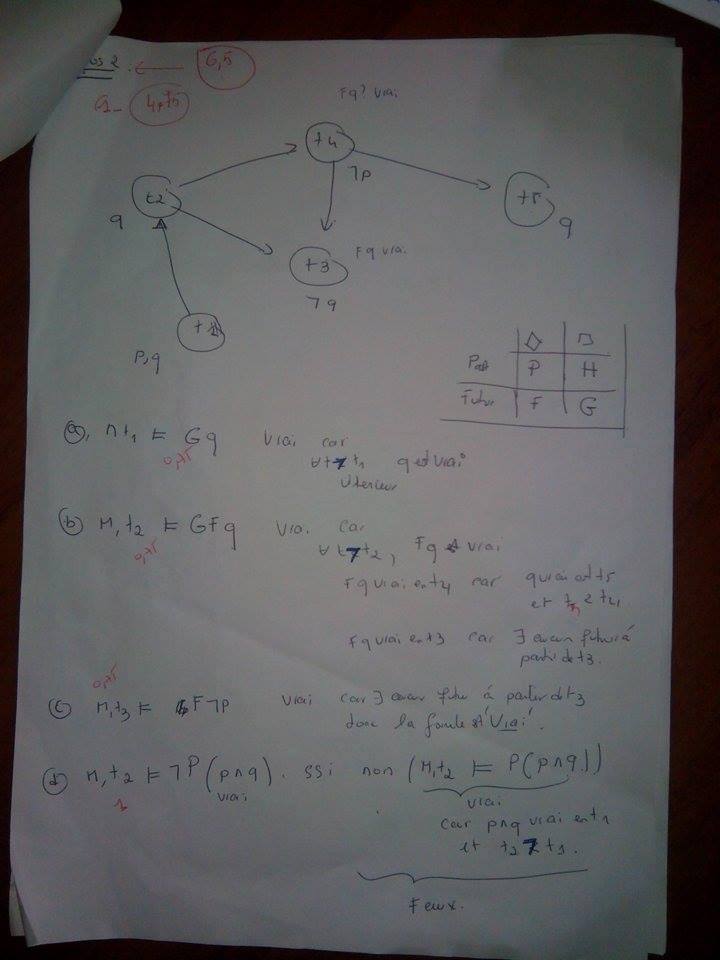 os 2 ← 6,5
Q_ 4,75
Fq? Vrai
t4
t2
¬p
t5
q
q
Fq vrai
t3
¬q
t1
p,q
◇ □
Past P H
Futur F G
a, M,t1 ⊨ Gq Vrai car
0,75 ∀t7t1 q est vrai
ulterieur
b M,t2 ⊨ GFq Vrai car
0,75 ∀t7t2, Fq vrai
Fq vrai en t4 car q vrai en t5
et
Fq vrai en t3 car ∃ aucun futur à
partir de t3.
0,75
c M,t3 ⊨ F¬p Vrai car ∃ aucun futur à partir de t3
donc la formule est 'Vrai'.
d M,t2 ⊨ ¬P(p∧q). ssi non (M,t2 ⊨ P(p∧q))
1 vrai vrai
car p∧q vrai en t1
et t27t1.
Faux.